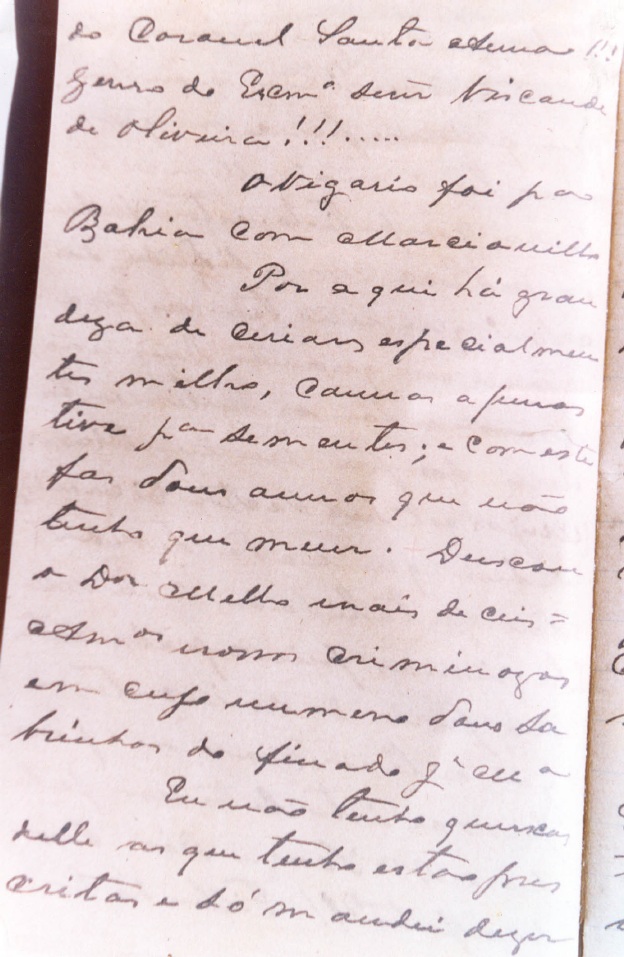 do Coronel Santa Anna!!!
genro do Excmº Senr Visconde
de Oliveira!!!.....
O vigario foi pª a
Bahia com
Por aqui há gran
deza de ceriaes especialmen
te milho, cannas apenas
tive pª sementes; e com este
faz dous annos que não
tenho que moer. Descan
o Dor Mello mais de
Amºs nossos criminozos
em cujo numero dous so
brinhos do finado
Eu não tenho queixas
delle as que tenho estão pres
critas e só mandei dizer